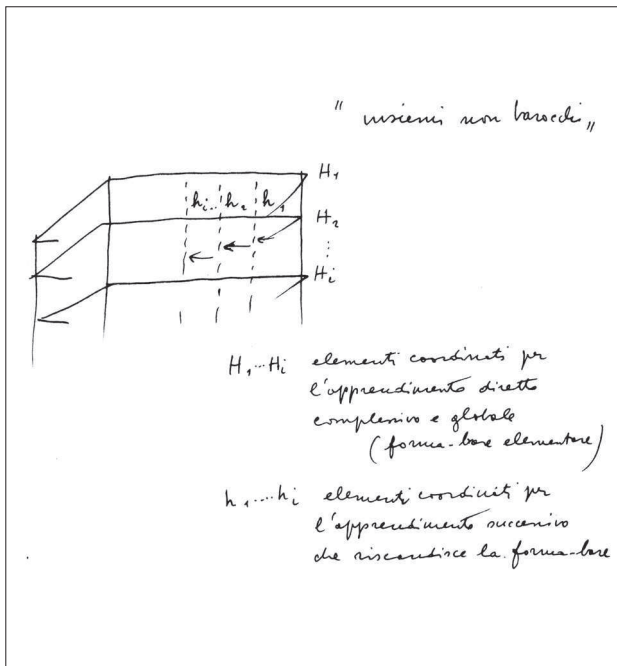 " insiemi non barocchi "
H₁
hᵢ.. h₂ h₁
H₂
⋮
Hᵢ
H₁...Hᵢ elementi coordinati per
l'apprendimento diretto
complessivo e globale
(forma-base elementare)
h₁....hᵢ elementi coordinati per
l'apprendimento successivo
che riscandisce la forma-base